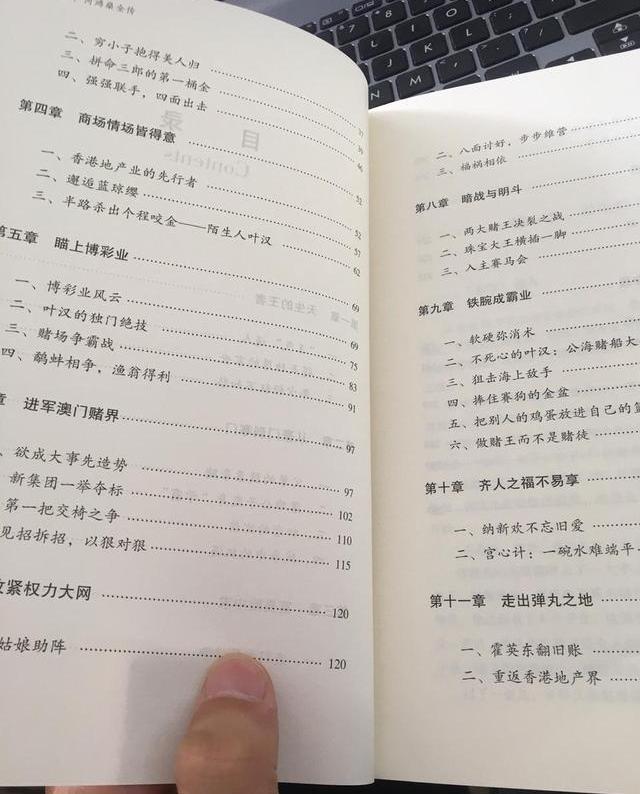 鸿燊全传
二、穷小子抱得美人归 37
三、拼命三郎的第一桶金 39
四、强强联手，四面出击 46
第四章 商场情场皆得意 52
一、香港地产业的先行者 52
二、邂逅蓝琼缨 57
三、半路杀出个程咬金——陌生人叶汉 62
第五章 瞄上博彩业 69
一、博彩业风云 69
二、叶汉的独门绝技 75
三、赌场争霸战 83
四、鹬蚌相争，渔翁得利 91
章 进军澳门赌界 97
、欲成大事先造势 97
新集团一举夺标 102
第一把交椅之争 110
见招拆招，以狠对狠 115
收紧权力大网 120
姑娘助阵 120
二、八面讨好，步步维营
三、福祸相依
第八章 暗战与明斗
一、两大赌王决裂之战
二、珠宝大王横插一脚
三、入主赛马会
第九章 铁腕成霸业
一、软硬弥消术
二、不死心的叶汉：公海赌船大
三、狙击海上敌手
四、捧住赛狗的金盆
五、把别人的鸡蛋放进自己的篮
六、做赌王而不是赌徒
第十章 齐人之福不易享
一、纳新欢不忘旧爱
二、宫心计：一碗水难端平
第十一章 走出弹丸之地
一、霍英东翻旧账
二、重返香港地产界